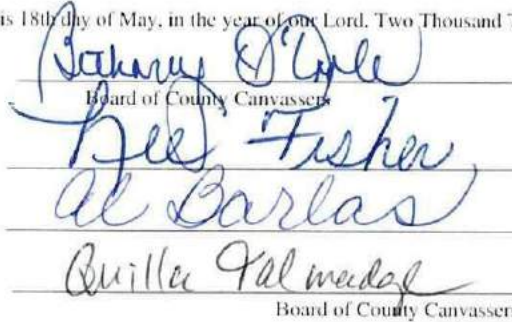 is 18th day of May, in the year of our Lord, Two Thousand T
Bethany O'Toole
Board of County Canvassers
Lee Fisher
Al Barlas
Quilla Talmadge
Board of County Canvasser